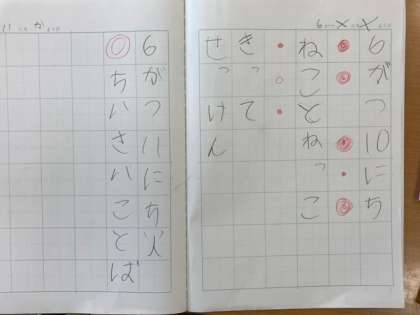 6がつ10にち
ねことねっこ
きって
せっけん
6がつ11にち火
ちいさいことば